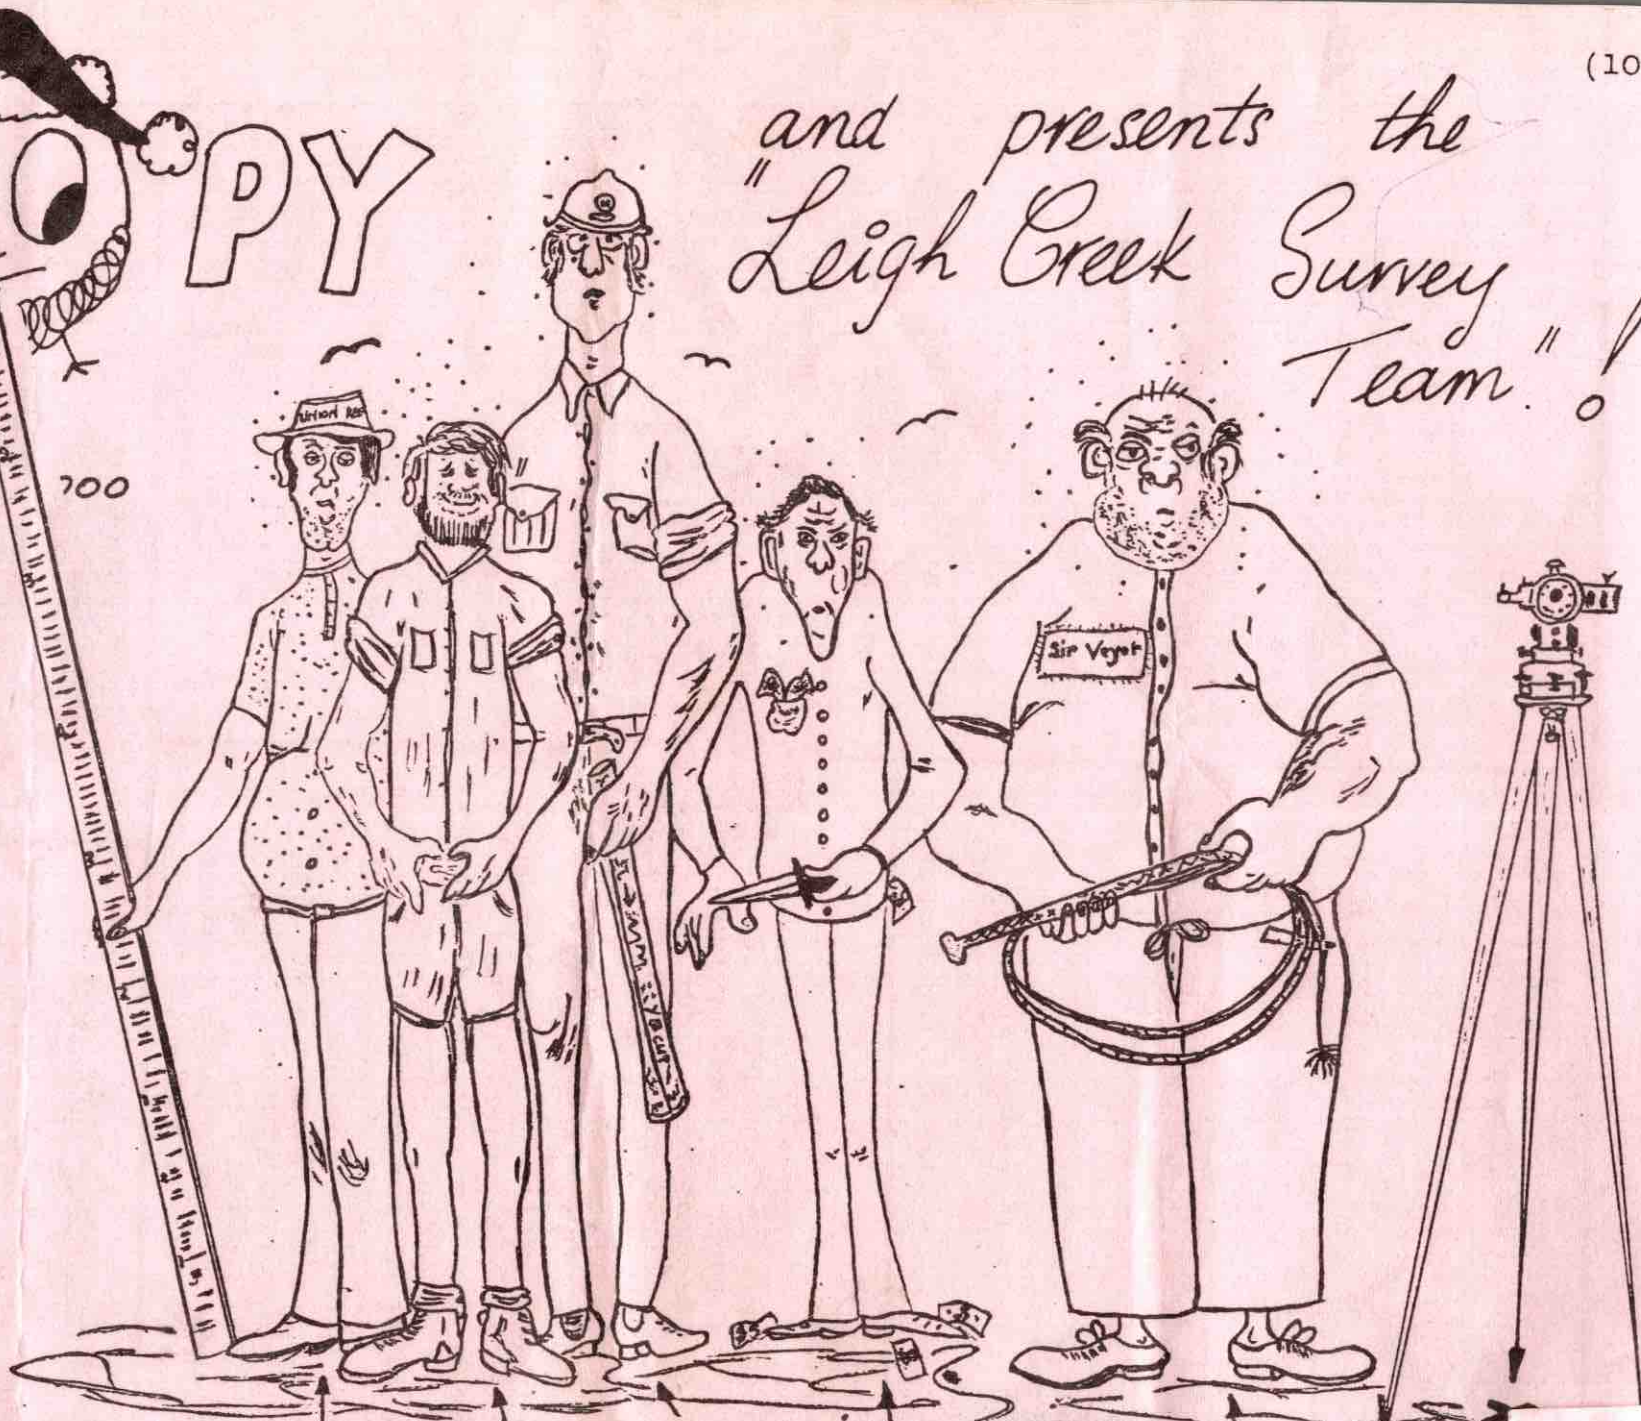 (10
OPY
and presents the
"Leigh Creek Survey
Team"!
UNION REP
700
Sir Veyor